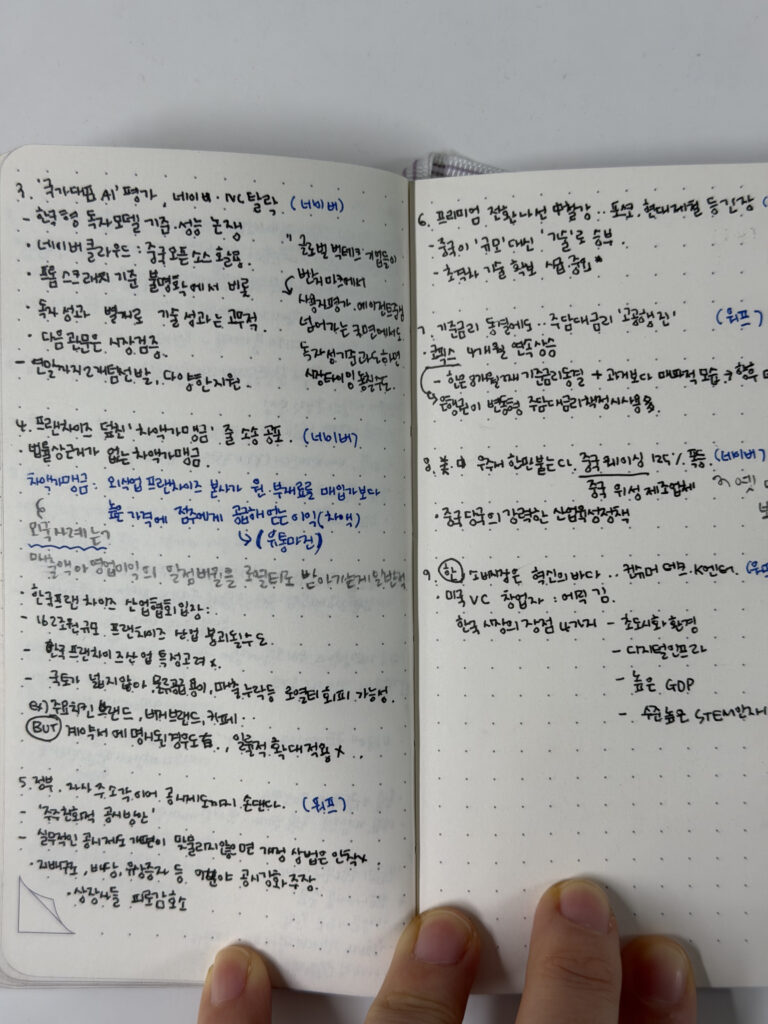 3. '국가대표 AI' 평가, 네이버·NC 탈락 (네이버)
- 한국형 독자모델 기준·성능 논쟁
· 네이버클라우드 : 중국 오픈소스 활용.
· 프롬 스크래치 기준 불명확에서 비롯
· 독자성과 별개로 기술성과는 고무적
· 다음 관문은 시장검증.
- 연말까지 2개팀 선발, 다양한 지원.
" 글로벌 빅테크 기업들이
벤치마크에서
사용자평가·에이전트중심
넘어가는 국면에서도
독자성기준 과도하면
시장타이밍 놓칠수도.
4. 프랜차이즈 덮친 '차액가맹금' 줄소송 공포. (네이버)
· 법률상 근거가 없는 차액가맹금.
차액가맹금 : 외식업 프랜차이즈 본사가 원·부재료를 매입가보다
높은 가격에 점주에게 공급해 얻는 이익(차액)
(유통마진)
외국사례는?
매출액이나 영업이익의 일정비율을 로열티로 받아가는게 일반적
· 한국프랜차이즈 산업협회 입장 :
- 162조원 규모 프랜차이즈 산업 붕괴될수도
- 한국프랜차이즈산업 특성고려 x.
- 국토가 넓지않아 물류공급 용이, 매출누락 등 로열티 회피 가능성.
ex) 주요치킨 브랜드, 버거브랜드, 카페..
BUT 계약서에 명시된 경우도 有.., 일률적 확대적용 x..
5. 정부, 자사주소각 이어 공시제도까지 손댄다. (워프)
- '주주친화적 공시방안'
- 실무적인 공시제도 개편이 맞물리지않으면 개정 상법은 안착x
· 지배구조, 배당, 유상증자 등 공시강화 주장.
· 상장사들 피로감호소
6. 프리미엄 전환 나선 中철강.. 포스코·현대제철 등 긴장
- 중국이 '규모' 대신 '기술'로 승부.
- 초격차 기술 확보 시급 중요*
7. 기준금리 동결에도.. 주담대금리 '고공행진' (워프)
· 코픽스 4개월 연속상승
- 한은 기준금리동결 + 과거보다 매파적 모습 → 향후
은행권이 변동형 주담대금리책정시 사용多.
8. 美·中 우주서 한판붙는다 중국 125% 폭등. (네이버)
중국 위성 제조업체
· 중국 당국의 강력한 산업육성정책
9. 한 소비시장은 혁신의 바다.. 컨슈머 테크·K엔터.
· 미국 VC 창업자 : 에릭 김.
한국시장의 장점 4가지 - 초도시화 환경
- 디지털인프라
- 높은 GDP
- 수준높은 STEM인재